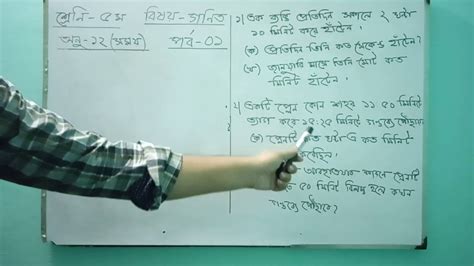 শ্রেণি-৫ম বিষয়-গণিত
অনু-১২ (সময়) পর্ব-০১
১। এক ব্যক্তি প্রতিদিন সকালে ২ ঘণ্টা
১০ মিনিট করে হাঁটেন।
(ক) প্রতিদিন তিনি কত সেকেন্ড হাঁটেন?
(খ) জানুয়ারি মাসে তিনি মোট কত
মিনিট হাঁটেন।
২। একটি ট্রেন কোন শহর ১১:৫০ মিনিটে
ত্যাগ করে ১৫:২৫ মিনিটে গন্তব্যে পৌঁছাল
(ক) ট্রেনটি কত ঘণ্টা ও কত মিনিট
কারণে ট্রেনটি
৫০ মিনিট বিলম্ব হলে কখন
গন্তব্যে পৌঁছাবে?